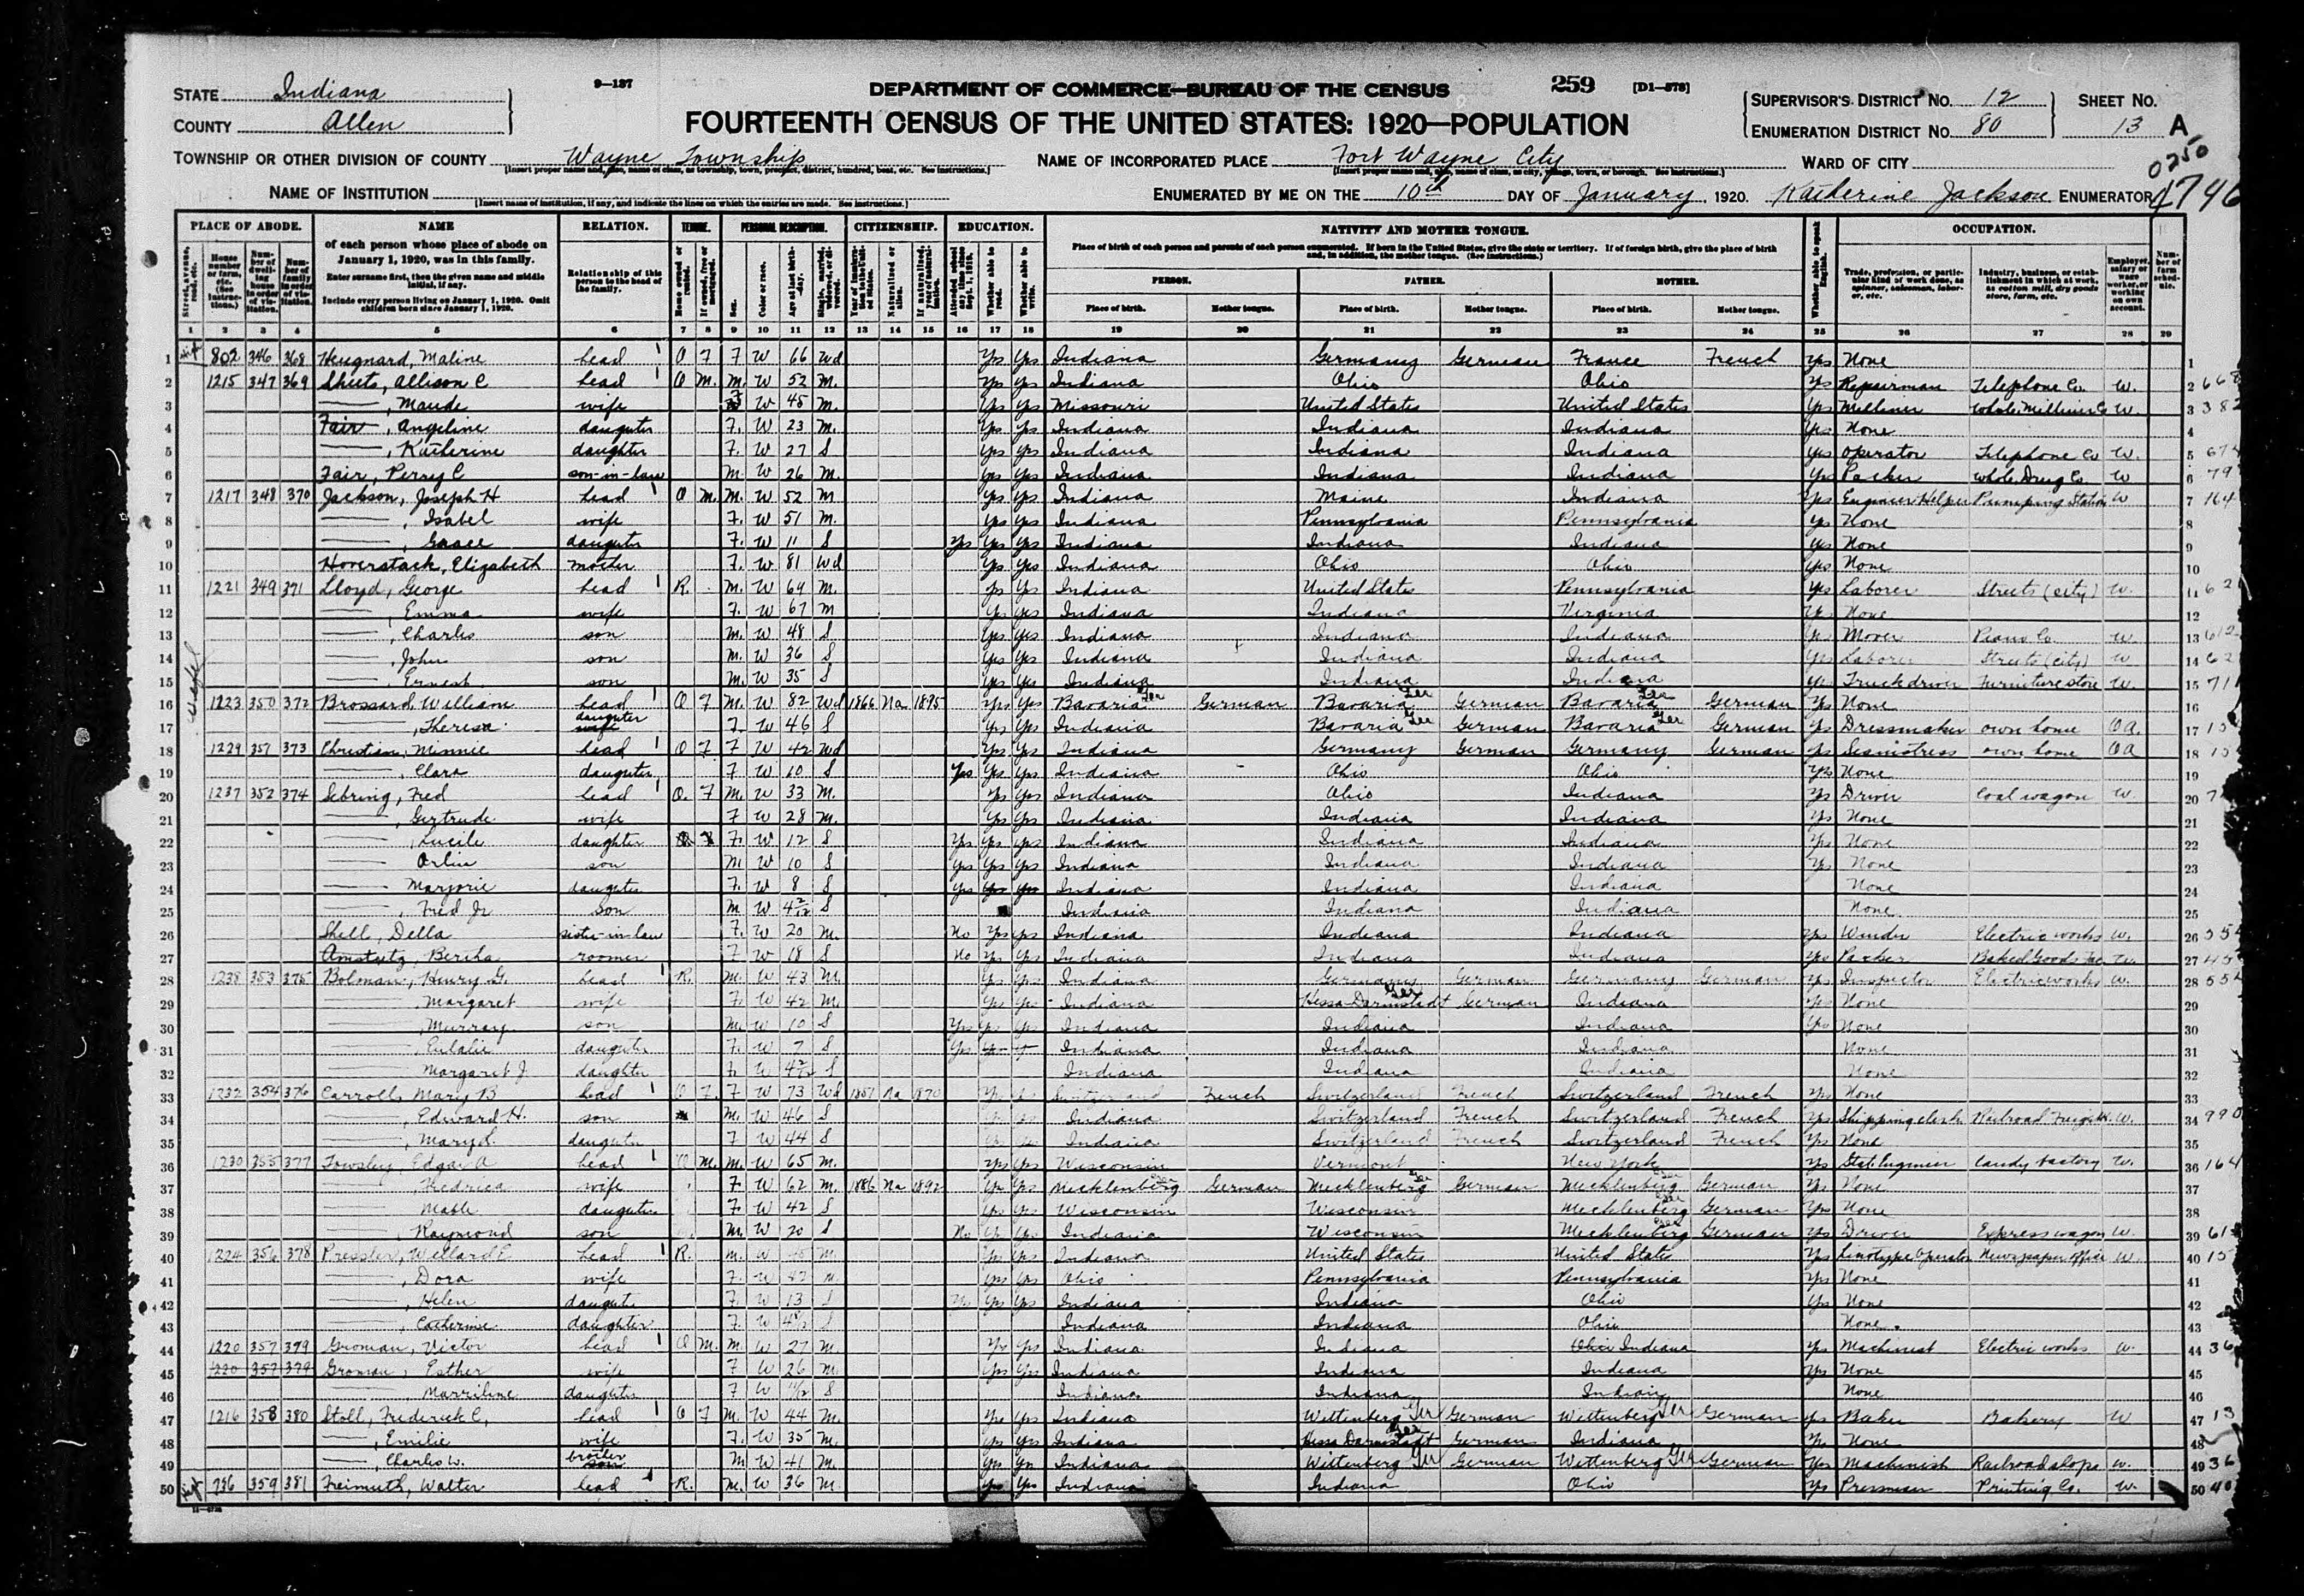 9—137
DEPARTMENT OF COMMERCE—BUREAU OF THE CENSUS
259
[D1—578]
STATE Indiana
COUNTY Allen
FOURTEENTH CENSUS OF THE UNITED STATES: 1920—POPULATION
SUPERVISOR'S DISTRICT NO. 12
ENUMERATION DISTRICT NO. 80
SHEET NO. 13 A
TOWNSHIP OR OTHER DIVISION OF COUNTY Wayne Township
NAME OF INCORPORATED PLACE Fort Wayne City
WARD OF CITY
0250
NAME OF INSTITUTION
[Insert name of institution, if any, and indicate the lines on which the entries are made. See instructions.]
ENUMERATED BY ME ON THE 10th DAY OF January, 1920. Katherine Jackson ENUMERATOR
PLACE OF ABODE. NAME RELATION. TENURE. PERSONAL DESCRIPTION. CITIZENSHIP. EDUCATION. NATIVITY AND MOTHER TONGUE. OCCUPATION.
of each person whose place of abode on January 1, 1920, was in this family.
Enter surname first, then the given name and middle initial, if any.
Include every person living on January 1, 1920. Omit children born since January 1, 1920.
Relationship of this person to the head of the family.
Place of birth of each person and parents of each person enumerated. If born in the United States, give the state or territory. If of foreign birth, give the place of birth and, in addition, the mother tongue. (See instructions.)
PERSON. FATHER. MOTHER.
Place of birth. Mother tongue. Place of birth. Mother tongue. Place of birth. Mother tongue.
1 2 3 4 5 6 7 8 9 10 11 12 13 14 15 16 17 18 19 20 21 22 23 24 25 26 27 28 29
1 802 346 368 Heugnard, Maline head O F F W 66 Wd Yes Yes Indiana Germany German France French Yes None 1
2 1215 347 369 Sheets, Allison C head O M. M. W 52 M. Yes Yes Indiana Ohio Ohio Yes Repairman Telephone Co. W. 2
3 , Maude wife F W 45 M. Yes Yes Missouri United States United States Yes Milliner W. 3 382
4 Fair, Angeline daughter F. W 23 M. Yes Yes Indiana Indiana Indiana Yes None 4
5 , Katherine daughter F. W 27 S Yes Yes Indiana Indiana Indiana Yes Operator Telephone Co W. 5
6 Fair, Perry C son-in-law M. W 26 M. Yes Yes Indiana Indiana Indiana Yes Packer whole. Drug Co. W 6 79
7 1217 348 370 Jackson, Joseph H head O M. M. W 52 M Yes Yes Indiana Maine Indiana Yes Engineer Helper Pumping Station W 7 164
8 , Isabel wife F. W 51 M. Yes Yes Indiana Pennsylvania Pennsylvania Yes None 8
9 , Grace daughter F. W 11 S Yes Yes Yes Indiana Indiana Indiana Yes None 9
10 Hoverstack, Elizabeth mother F. W 81 Wd Yes Yes Indiana Ohio Ohio Yes None 10
11 1221 349 371 Lloyd, George head R. M. W 69 M. Yes Yes Indiana United States Pennsylvania Yes Laborer Streets (city) W. 11 62
12 , Emma wife F. W 67 M Yes Yes Indiana Indiana Virginia Yes None 12
13 , Charles son M. W 48 S Yes Yes Indiana Indiana Indiana Yes Mover Piano Co. W 13 612
14 , John son M. W 36 S Yes Yes Indiana Indiana Indiana Yes Laborer Streets (city) W 14 62
15 , Ernest son M. W 35 S Yes Yes Indiana Indiana Indiana Yes Truck driver Furniture store W. 15 71
16 1223 350 372 Brossard, William head O F M. W 82 Wd 1866 Na 1895 Yes Yes Bavaria Ger German Bavaria Ger German Bavaria Ger German Yes None 16
17 , Theresa daughter F. W 46 S Yes Yes Indiana Bavaria Ger German Bavaria Ger German Yes Dressmaker own home OA. 17
18 1229 351 373 Christian, Minnie head O F F W 42 Wd Yes Yes Indiana Germany German Germany German Yes Seamstress own home OA 18
19 , Clara daughter F W 10 S Yes Yes Yes Indiana Ohio Ohio Yes None 19
20 1237 352 374 Sebring, Fred head O. F M. W 33 M. Yes Yes Indiana Ohio Indiana Yes Driver Coal wagon W 20
21 , Gertrude wife F W 28 M. Yes Yes Indiana Indiana Indiana Yes None 21
22 , Lucile daughter F. W 12 S Yes Yes Yes Indiana Indiana Indiana Yes None 22
23 Orlin son M W 10 S Yes Yes Yes Indiana Indiana Indiana Yes None 23
24 Marjorie daughter F. W 8 S Yes Yes Yes Indiana Indiana Indiana None 24
25 , Fred Jr Son M W 4 2/12 S Indiana Indiana Indiana None 25
26 Shell, Della sister-in-law F. W 20 M. No Yes Yes Indiana Indiana Indiana Yes Winder Electric works W. 26
27 Amstutz, Bertha roomer F W 18 S No Yes Yes Indiana Indiana Indiana Yes Packer Baked Goods W. 27
28 1238 353 375 Bolman, Henry G. head R. M. W 43 M. Yes Yes Indiana Germany German Germany German Yes Inspector Electric works W. 28
29 , Margaret wife F. W 42 M. Yes Yes Indiana Hessa-Darmstadt Ger German Indiana Yes None 29
30 , Murray son M. W 10 S Yes Yes Yes Indiana Indiana Indiana Yes None 30
31 , Eulalie daughter F. W 7 S Yes Indiana Indiana Indiana None 31
32 Margaret J. daughter F. W S Indiana Indiana Indiana None 32
33 1232 354 376 Carroll, Mary B head O F. F W 73 Wd 1851 Na 1870 Yes Yes Switzerland French Switzerland French Switzerland French Yes None 33
34 , Edward H. son M. W 46 S Indiana Switzerland French Switzerland French Yes Shipping clerk Railroad Freight W. 34 990
35 , Mary L. daughter F W 44 S Indiana Switzerland French Switzerland French Yes None 35
36 1230 355 377 Towsley, Edgar A head O M. M. W 65 M. Yes Yes Wisconsin Vermont New York Yes Stat. Engineer Candy factory W. 36 164
37 , Fredrica wife F. W 62 M. 1886 Na 1892 Yes Yes Mecklenberg German Mecklenberg Ger German Mecklenberg German Yes None 37
38 Mable daughter F. W 42 S Yes Yes Wisconsin Wisconsin Mecklenberg German Yes None 38
39 , Raymond son M. W 20 S No Yes Yes Indiana Wisconsin Mecklenberg German Yes Driver Express wagon W. 39 613
40 1224 356 378 Pressler, Willard E. head R. M. W M. Yes Yes Indiana United States United States Yes Linotype Operator Newspaper office W. 40 15
41 , Dora wife F. W 42 M. Yes Yes Ohio Pennsylvania Pennsylvania Yes None 41
42 , Helen daughter F. W 13 S Yes Yes Yes Indiana Indiana Ohio Yes None 42
43 , Catherine daughter F. W S Indiana Indiana Ohio None. 43
44 1220 357 379 Groman, Victor head O M. M W 27 M. Yes Yes Indiana Indiana Ohio Indiana Yes Machinist Electric works W. 44 36
45 1220 357 379 Groman, Esther wife F W 26 M. Yes Yes Indiana Indiana Indiana Yes None 45
46 , Marriline daughter F W S Indiana Indiana Indiana None 46
47 1216 358 380 Stoll, Frederick C, head O F M. W 44 M. Yes Yes Indiana Wittenberg Ger German Wittenberg Ger German Yes Baker Bakery W 47 13
48 , Emilie wife F. W 35 M. Yes Yes Indiana Hessa Darmstadt Ger German Indiana Yes None 48
49 , Charles W. brother son M W 41 M. Yes Yes Indiana Wittenberg Ger German Wittenberg Ger German Yes Machinist Railroad shops W. 49 36
50 736 359 381 Freimuth, Walter head R. M. W 36 M Yes Yes Indiana Indiana Ohio Yes Pressman Printing Co. W. 50 40